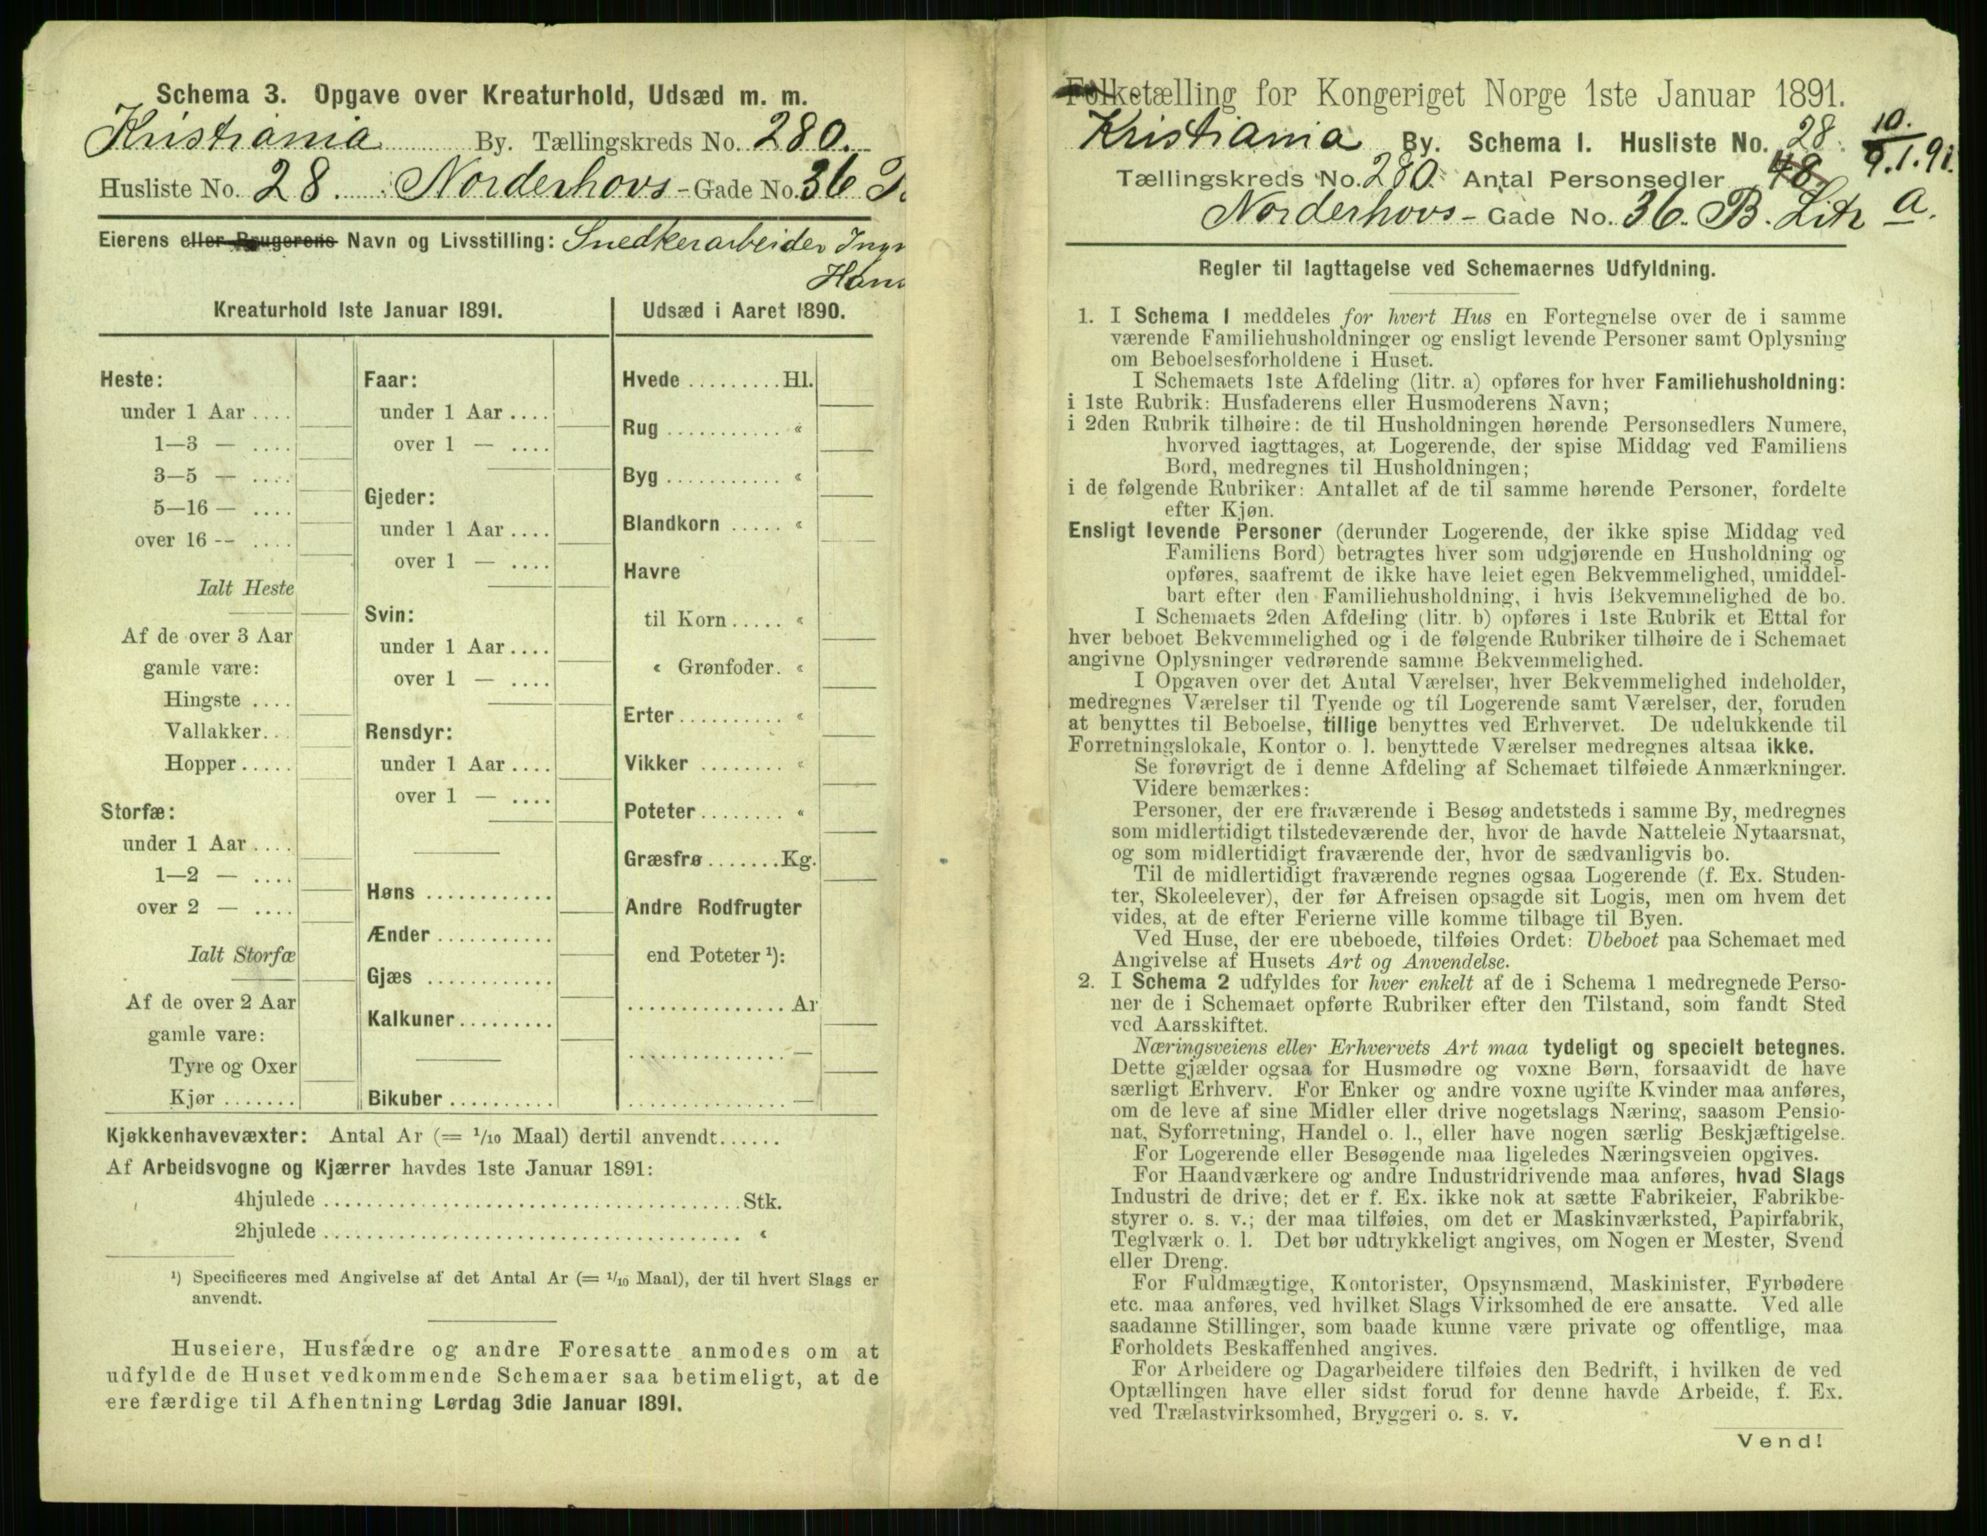 Schema 3. Opgave over Kreaturhold, Udsæd m. m.
Kristiania By. Tællingskreds No. 280.
Husliste No. 28. Norderhovs - Gade No. 36
Eierens eller Brugerens Navn og Livsstilling: Snedkerarbeider
Kreaturhold 1ste Januar 1891.
Heste:
under 1 Aar ....
1—3 — ....
3—5 — ....
5—16 — ....
over 16 -- ....
Ialt Heste
Af de over 3 Aar
gamle vare:
Hingste ....
Vallakker...
Hopper.....
Storfæ:
under 1 Aar ....
1—2 — ....
over 2 — ....
Ialt Storfæ
Af de over 2 Aar
gamle vare:
Tyre og Oxer
Kjør .......
Faar:
under 1 Aar ....
over 1 — ....
Gjeder:
under 1 Aar ....
over 1 — ....
Svin:
under 1 Aar ....
over 1 — ....
Rensdyr:
under 1 Aar ....
over 1 — ....
Høns ............
Ænder ...........
Gjæs ............
Kalkuner.........
Bikuber ..........
Udsæd i Aaret 1890.
Hvede ......... Hl.
Rug ........... «
Byg ........... «
Blandkorn ..... «
Havre
til Korn..... «
« Grønfoder. «
Erter.......... «
Vikker ........ «
Poteter........ «
Græsfrø .......Kg.
Andre Rodfrugter
end Poteter ¹):
............... Ar
............... —
............... —
Kjøkkenhavevæxter: Antal Ar (= 1/10 Maal) dertil anvendt......
Af Arbeidsvogne og Kjærrer havdes 1ste Januar 1891:
4hjulede ........................................Stk.
2hjulede ........................................ «
¹) Specificeres med Angivelse af det Antal Ar (= 1/10 Maal), der til hvert Slags er
anvendt.
Huseiere, Husfædre og andre Foresatte anmodes om at
udfylde de Huset vedkommende Schemaer saa betimeligt, at de
ere færdige til Afhentning Lørdag 3die Januar 1891.
Folketælling for Kongeriget Norge 1ste Januar 1891.
Kristiania By. Schema 1. Husliste No. 28.
10.
9.1.91.
Tællingskreds No. 280. Antal Personsedler 48.
Norderhovs - Gade No. 36. B. Litr a.
Regler til Iagttagelse ved Schemaernes Udfyldning.
1. I Schema 1 meddeles for hvert Hus en Fortegnelse over de i samme
værende Familiehusholdninger og ensligt levende Personer samt Oplysning
om Beboelsesforholdene i Huset.
I Schemaets 1ste Afdeling (litr. a) opføres for hver Familiehusholdning:
i 1ste Rubrik: Husfaderens eller Husmoderens Navn;
i 2den Rubrik tilhøire: de til Husholdningen hørende Personsedlers Numere,
hvorved iagttages, at Logerende, der spise Middag ved Familiens
Bord, medregnes til Husholdningen;
i de følgende Rubriker: Antallet af de til samme hørende Personer, fordelte
efter Kjøn.
Ensligt levende Personer (derunder Logerende, der ikke spise Middag ved
Familiens Bord) betragtes hver som udgjørende en Husholdning og
opføres, saafremt de ikke have leiet egen Bekvemmelighed, umiddel-
bart efter den Familiehusholdning, i hvis Bekvemmelighed de bo.
I Schemaets 2den Afdeling (litr. b) opføres i 1ste Rubrik et Ettal for
hver beboet Bekvemmelighed og i de følgende Rubriker tilhøire de i Schemaet
angivne Oplysninger vedrørende samme Bekvemmelighed.
I Opgaven over det Antal Værelser, hver Bekvemmelighed indeholder,
medregnes Værelser til Tyende og til Logerende samt Værelser, der, foruden
at benyttes til Beboelse, tillige benyttes ved Erhvervet. De udelukkende til
Forretningslokale, Kontor o. l. benyttede Værelser medregnes altsaa ikke.
Se forøvrigt de i denne Afdeling af Schemaet tilføiede Anmærkninger.
Videre bemærkes:
Personer, der ere fraværende i Besøg andetsteds i samme By, medregnes
som midlertidigt tilstedeværende der, hvor de havde Natteleie Nytaarsnat,
og som midlertidigt fraværende der, hvor de sædvanligvis bo.
Til de midlertidigt fraværende regnes ogsaa Logerende (f. Ex. Studen-
ter, Skoleelever), der før Afreisen opsagde sit Logis, men om hvem det
vides, at de efter Ferierne ville komme tilbage til Byen.
Ved Huse, der ere ubeboede, tilføies Ordet: Ubeboet paa Schemaet med
Angivelse af Husets Art og Anvendelse.
2. I Schema 2 udfyldes for hver enkelt af de i Schema 1 medregnede Perso-
ner de i Schemaet opførte Rubriker efter den Tilstand, som fandt Sted
ved Aarsskiftet.
Næringsveiens eller Erhvervets Art maa tydeligt og specielt betegnes.
Dette gjælder ogsaa for Husmødre og voxne Børn, forsaavidt de have
særligt Erhverv. For Enker og andre voxne ugifte Kvinder maa anføres,
om de leve af sine Midler eller drive nogetslags Næring, saasom Pensio-
nat, Syforretning, Handel o. l., eller have nogen særlig Beskjæftigelse.
For Logerende eller Besøgende maa ligeledes Næringsveien opgives.
For Haandværkere og andre Industridrivende maa anføres, hvad Slags
Industri de drive; det er f. Ex. ikke nok at sætte Fabrikeier, Fabrikbe-
styrer o. s. v.; der maa tilføies, om det er Maskinværksted, Papirfabrik,
Teglværk o. l. Det bør udtrykkeligt angives, om Nogen er Mester, Svend
eller Dreng.
For Fuldmægtige, Kontorister, Opsynsmænd, Maskinister, Fyrbødere
etc. maa anføres, ved hvilket Slags Virksomhed de ere ansatte. Ved alle
saadanne Stillinger, som baade kunne være private og offentlige, maa
Forholdets Beskaffenhed angives.
For Arbeidere og Dagarbeidere tilføies den Bedrift, i hvilken de ved
Optællingen have eller sidst forud for denne havde Arbeide, f. Ex.
ved Trælastvirksomhed, Bryggeri o. s. v.
Vend!